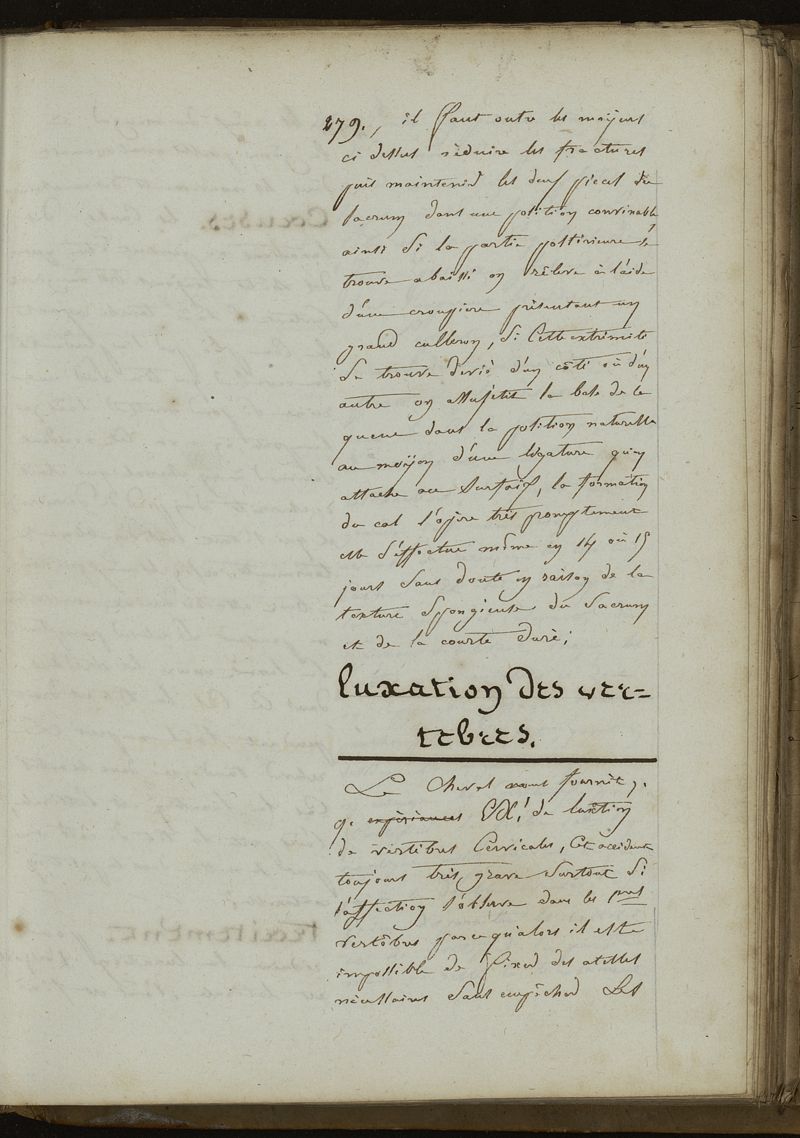 279., il faut outre les moyens
ci dessus rèduire les fractures
puis maintenir les deux pieces du
sacrum dans une position convenable
ainsi si la partie postérieure se
trouve abaissé on rélève à l'aide
d'une croupiere présentant un
grand culleron, si cette extrémité
se trouve devié d'un coté où d'un
autre on assujetit la base de la
queue dans la position naturelle
au moyen d'une ligature qu'on
attache au surfaix, la formation
du cal s'opere très promptement
elle s'effectue même en 14 où 15
jours sans doute en raison de la
texture spongieuse du sacrum
et de la courte durè;
luxation des ver=
tebres.
Le cheval nous fournit,
q. expèriances EX! de luxation
de vertebres cervicales, cet accident
toujours très grave surtout si
l'affection s'observe dans les pres
vertèbres parcequ'alors il est
impossible de fixer des atelles
nécessaires sans empêcher les
Causes.
traitement.